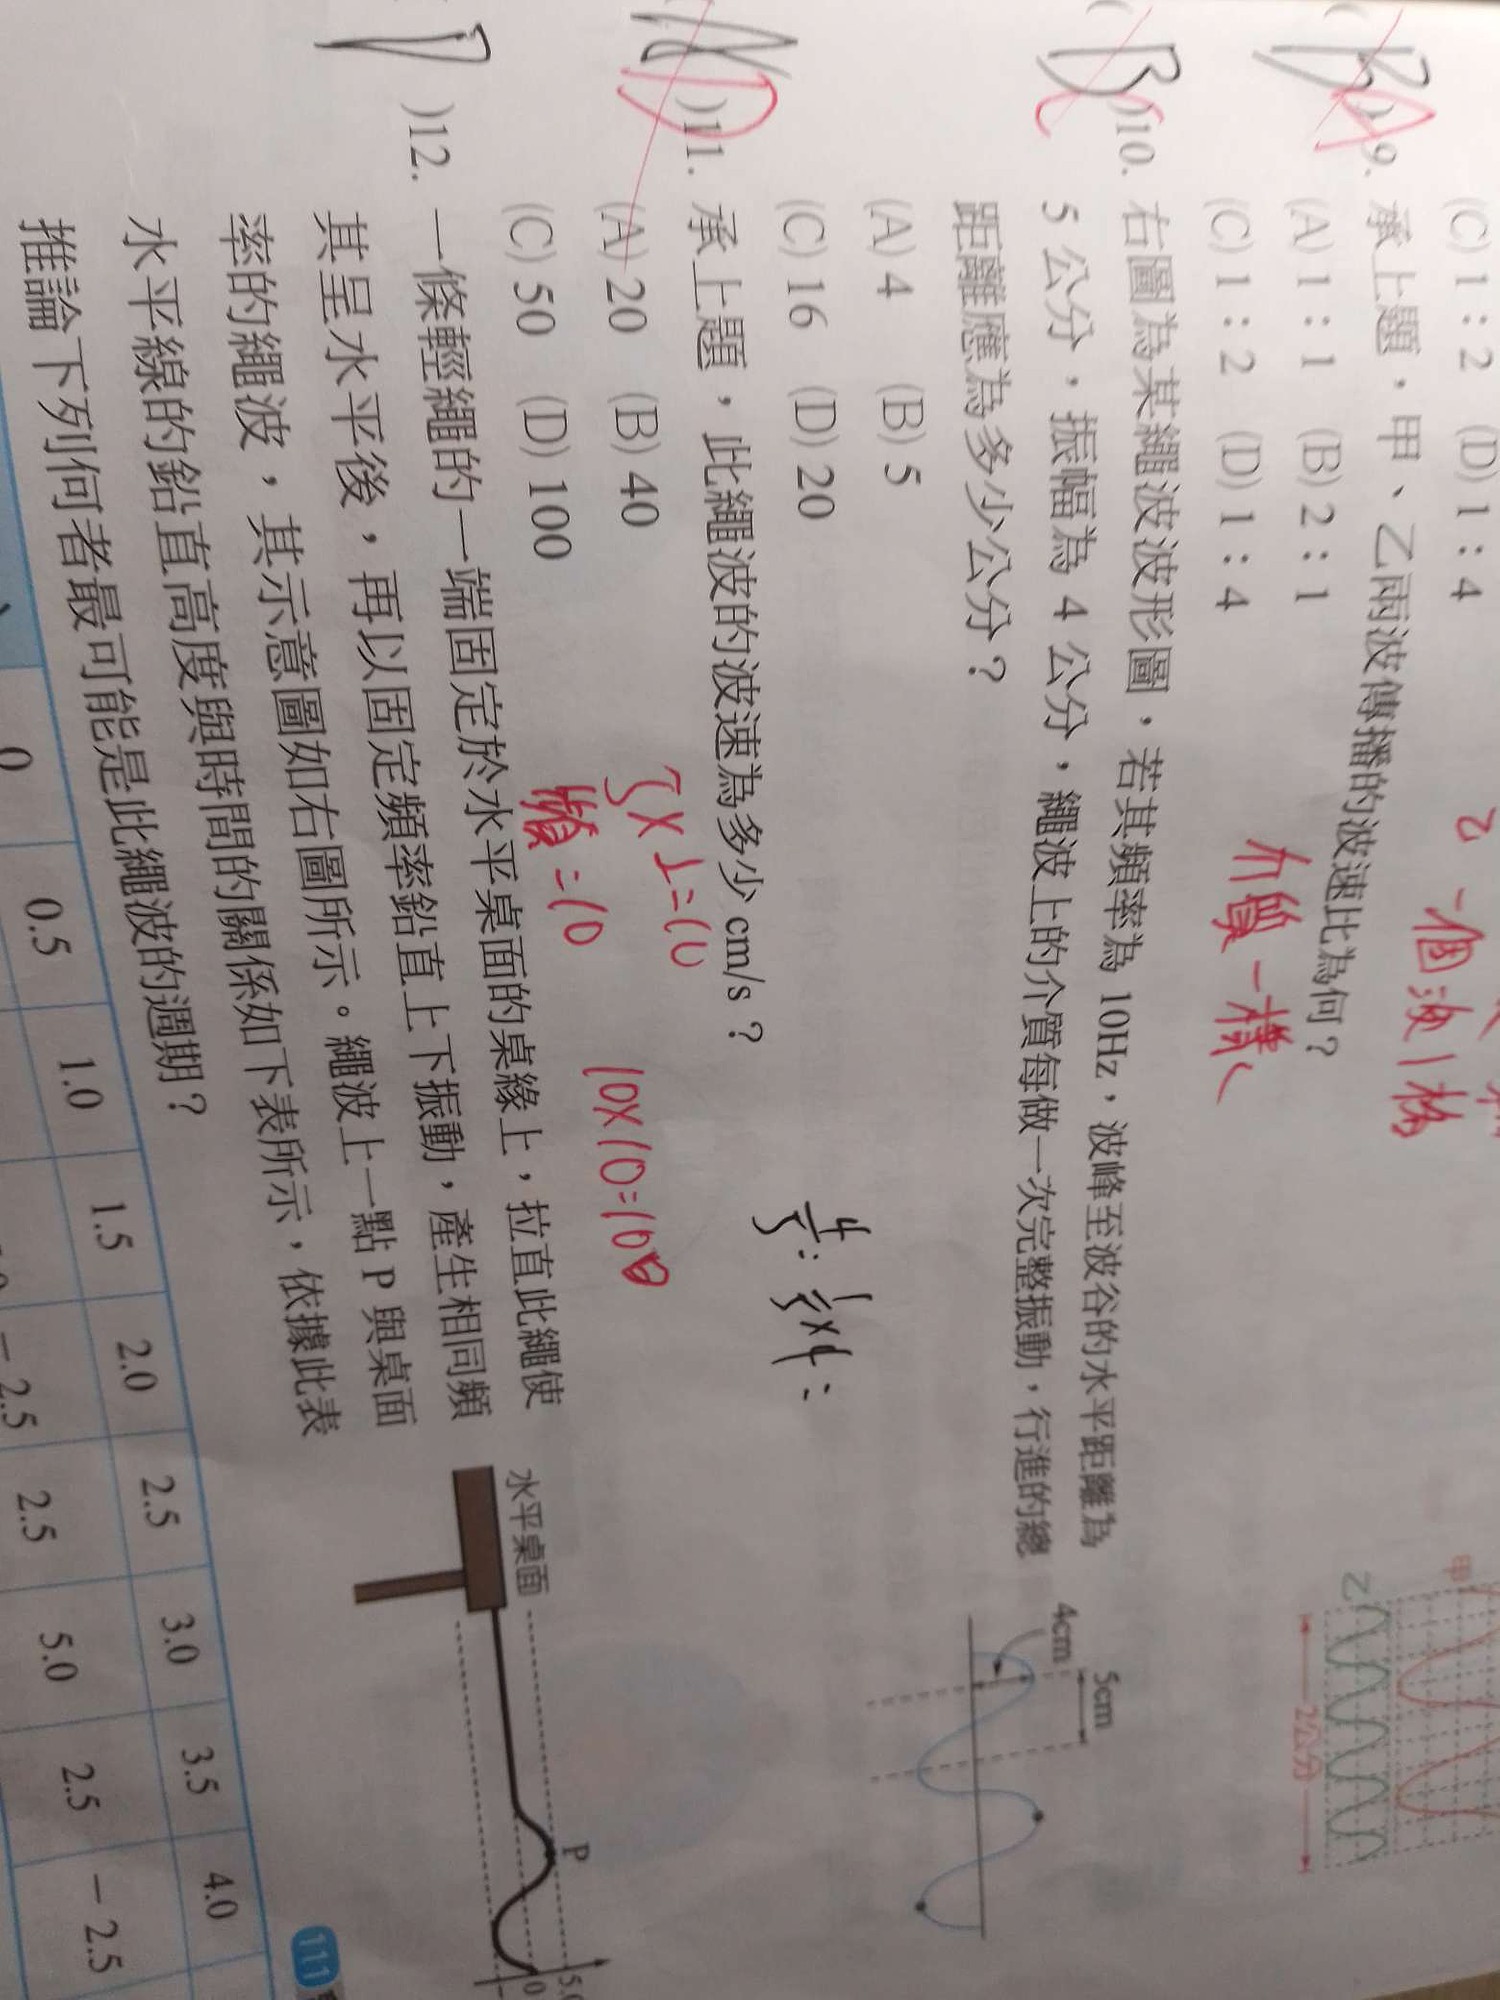 (C) 1：2 (D) 1：4
乙 一個波 1 格
)9. 承上題，甲、乙兩波傳播的波速比為何？
(A) 1：1 (B) 2：1
(C) 1：2 (D) 1：4
介質一樣
甲
乙
2公分
)10. 右圖為某繩波波形圖，若其頻率為 10Hz，波峰至波谷的水平距離為
5 公分，振幅為 4 公分，繩波上的介質每做一次完整振動，行進的總
距離應為多少公分？
(A) 4 (B) 5
(C) 16 (D) 20
5cm
4cm
)11. 承上題，此繩波的波速為多少 cm/s？
(A) 20 (B) 40
(C) 50 (D) 100
頻=10
10×10=100
)12. 一條輕繩的一端固定於水平桌面的桌緣上，拉直此繩使
其呈水平後，再以固定頻率鉛直上下振動，產生相同頻
率的繩波，其示意圖如右圖所示。繩波上一點 P 與桌面
水平線的鉛直高度與時間的關係如下表所示，依據此表
推論下列何者最可能是此繩波的週期？
水平桌面
P
0
0 0.5 1.0 1.5 2.0 2.5 3.0 3.5 4.0
－2.5 2.5 5.0 2.5 －2.5
111